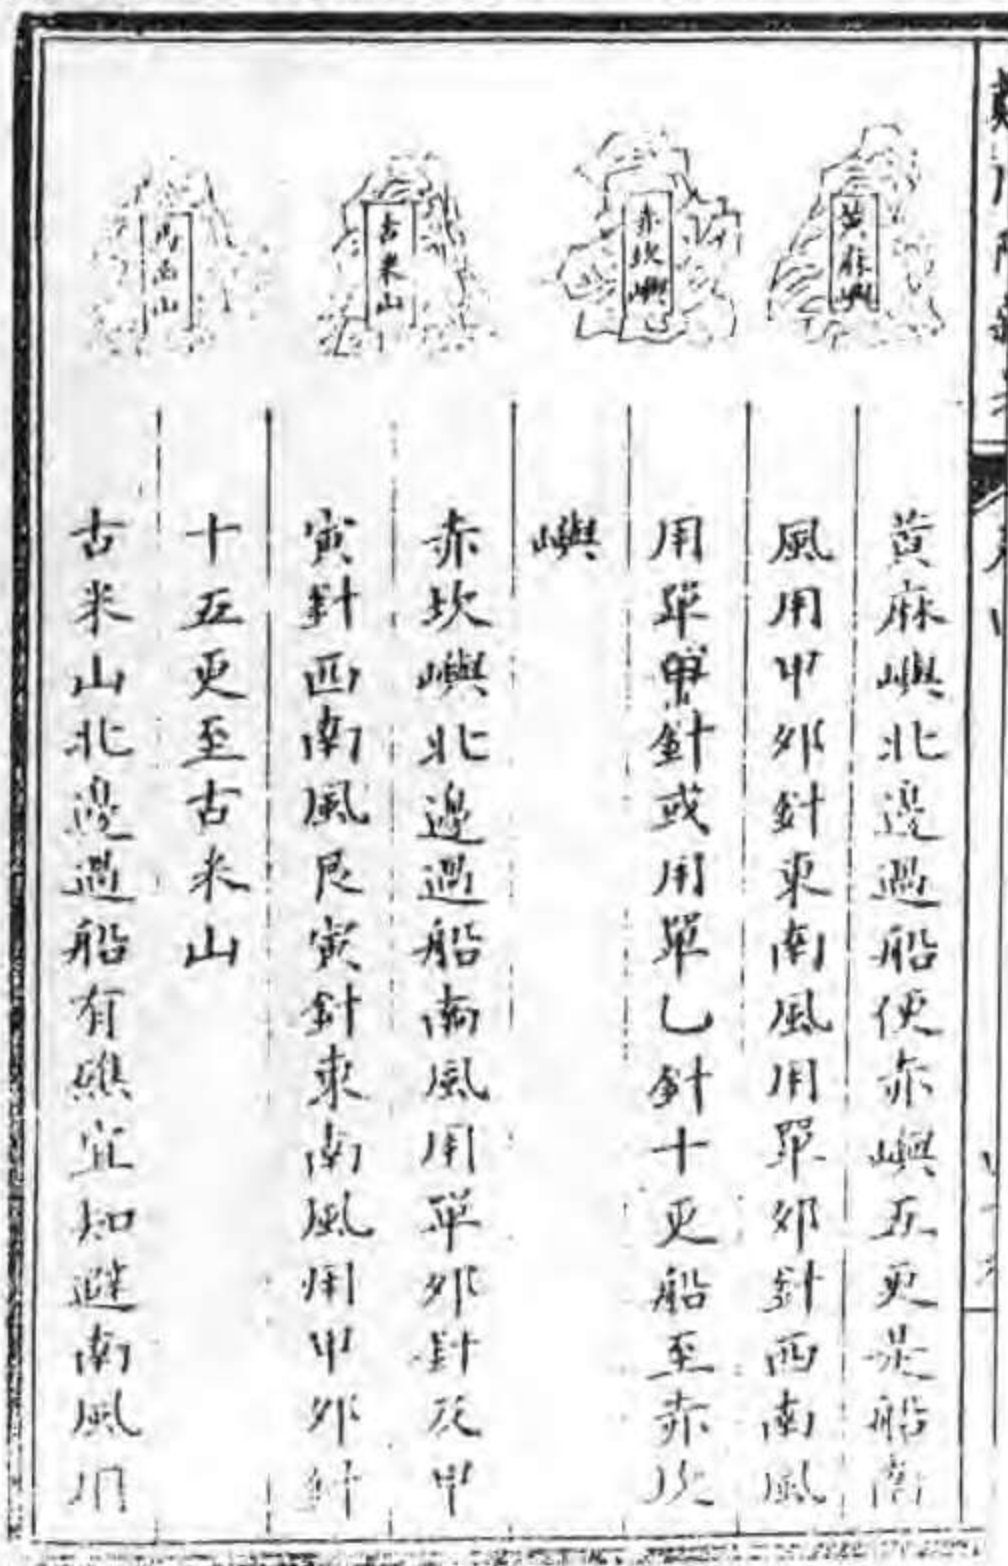 黄麻嶼
赤坎嶼
古米山
馬山
黄麻嶼北邊過船便赤嶼五更是船南
風用甲邜針東南風用單邜針西南風
用單甲針或用單乙針十更船至赤坎
嶼
赤坎嶼北邊過船南風用單邜針及甲
寅針西南風艮寅針東南風用甲邜針
十五更至古米山
古米山北邊過船有礁宜知避南風用